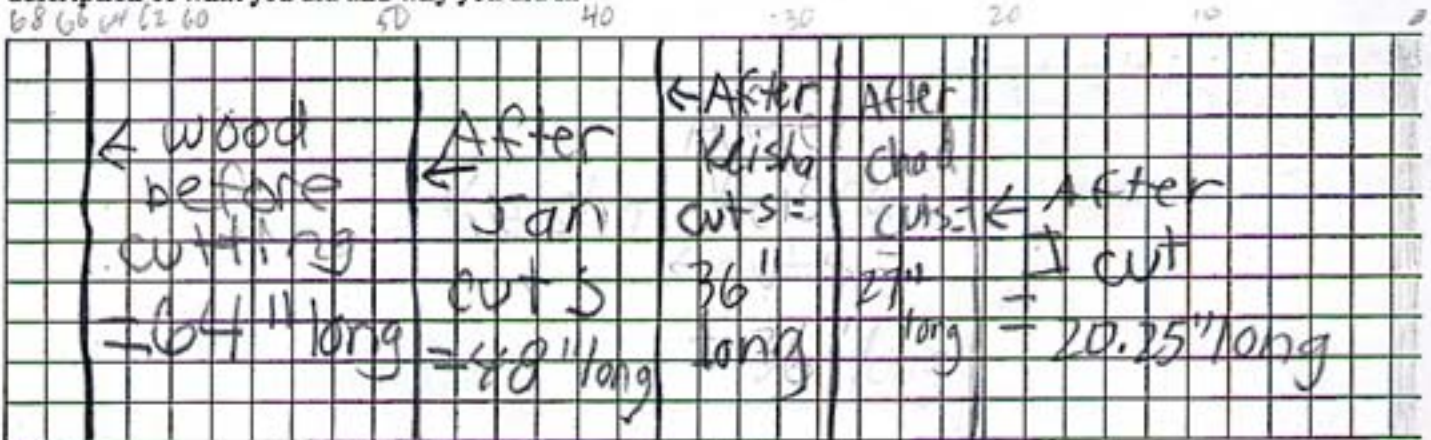 68 66 64 62 60 50 40 30 20 10
← wood
before
cutting
=64" long
← After
Jan
cuts
=48" long
← After
Keisha
cuts=
36"
long
After
Chad
cuts=
27"
long
← After
I cut
= 20.25" long